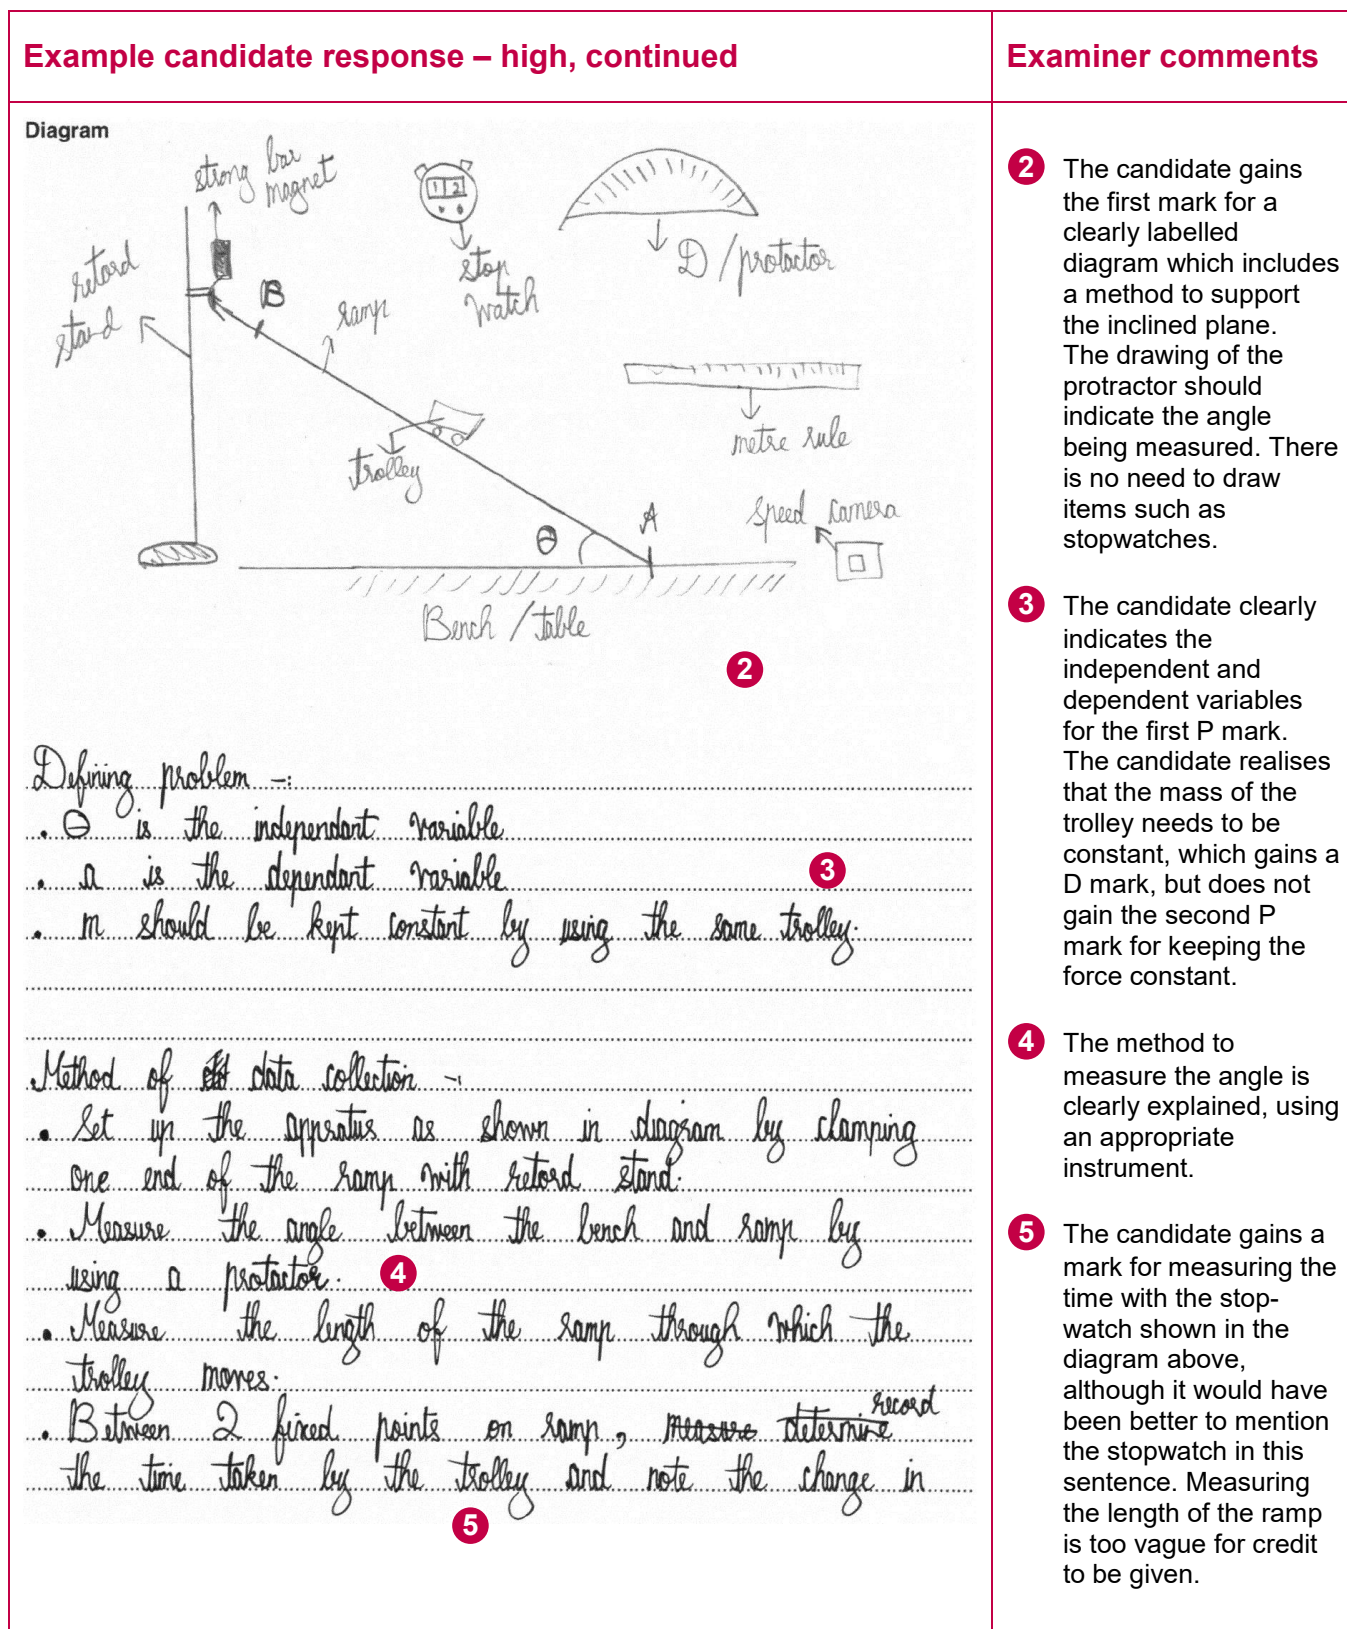 Example candidate response – high, continued
Examiner comments
Diagram
strong bar
magnet
retord
stand
B
ramp
trolley
12
stop
watch
D / protactor
metre rule
speed camera
θ
A
Bench / table
2
Defining problem -:
. θ is the independant variable
. a is the dependant variable
3
. m should be kept constant by using the same trolley.
Method of data collection -:
. Set up the appratus as shown in diagram by clamping
one end of the ramp with retord stand.
. Measure the angle between the bench and ramp by
using a protactor.
4
. Measure the length of the ramp through which the
trolley moves.
. Between 2 fixed points on ramp, measure determine record
the time taken by the trolley and note the change in
5
2 The candidate gains
the first mark for a
clearly labelled
diagram which includes
a method to support
the inclined plane.
The drawing of the
protractor should
indicate the angle
being measured. There
is no need to draw
items such as
stopwatches.
3 The candidate clearly
indicates the
independent and
dependent variables
for the first P mark.
The candidate realises
that the mass of the
trolley needs to be
constant, which gains a
D mark, but does not
gain the second P
mark for keeping the
force constant.
4 The method to
measure the angle is
clearly explained, using
an appropriate
instrument.
5 The candidate gains a
mark for measuring the
time with the stop-
watch shown in the
diagram above,
although it would have
been better to mention
the stopwatch in this
sentence. Measuring
the length of the ramp
is too vague for credit
to be given.